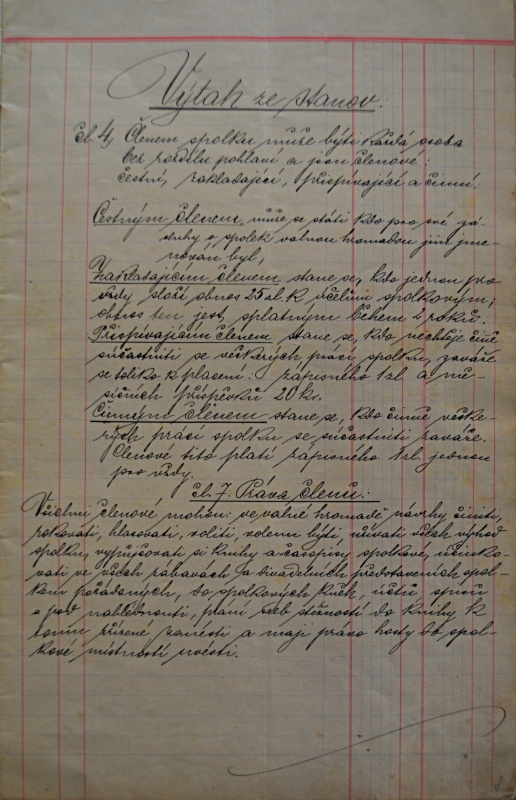 Výtah ze stanov:
čl. 4, Členem spolku může býti každá osoba
bez rozdílu pohlaví a jsou členové:
čestní, zakládající, přispívající a činní.
Čestným členem může se státi kdo pro své zá-
sluhy o spolek valnou hromadou jím jme-
nován byl,
Zakládajícím členem stane se, kdo jednou pro
vždy složí obnos 25 zl. k účelům spolkovým;
obnos ten jest splatným během 2 roků.
Přispívajícím členem stane se, kdo nechtěje čině
súčastniti se veškerých prací spolku, zaváže
se toliko k placení: zápisného 1 zl. a mě-
síčních příspěvků 20 kr.
Činným členem stane se, kdo čině veške-
rých prací spolku se súčastniti zaváže.
Členové tito platí zápisného 1 zl. jednou
pro vždy.
čl. 7. Práva členů:
Všichni členové mohou: ve valné hromadě návrhy činiti,
rokovati, hlasovati, voliti, volenu býti, užívati všech výhod
spolku, vypůjčovati si knihy a časopisy spolkové, účinko-
vati ve všech zábavách a divadelních představeních spol-
kem pořádaných, do spolkových knih, účtů, spisů
a pod nahlédnouti, přání neb stížnosti do knihy k
tomu zřízené zanésti a mají právo hosty do spol-
kové místnosti uvésti.
8